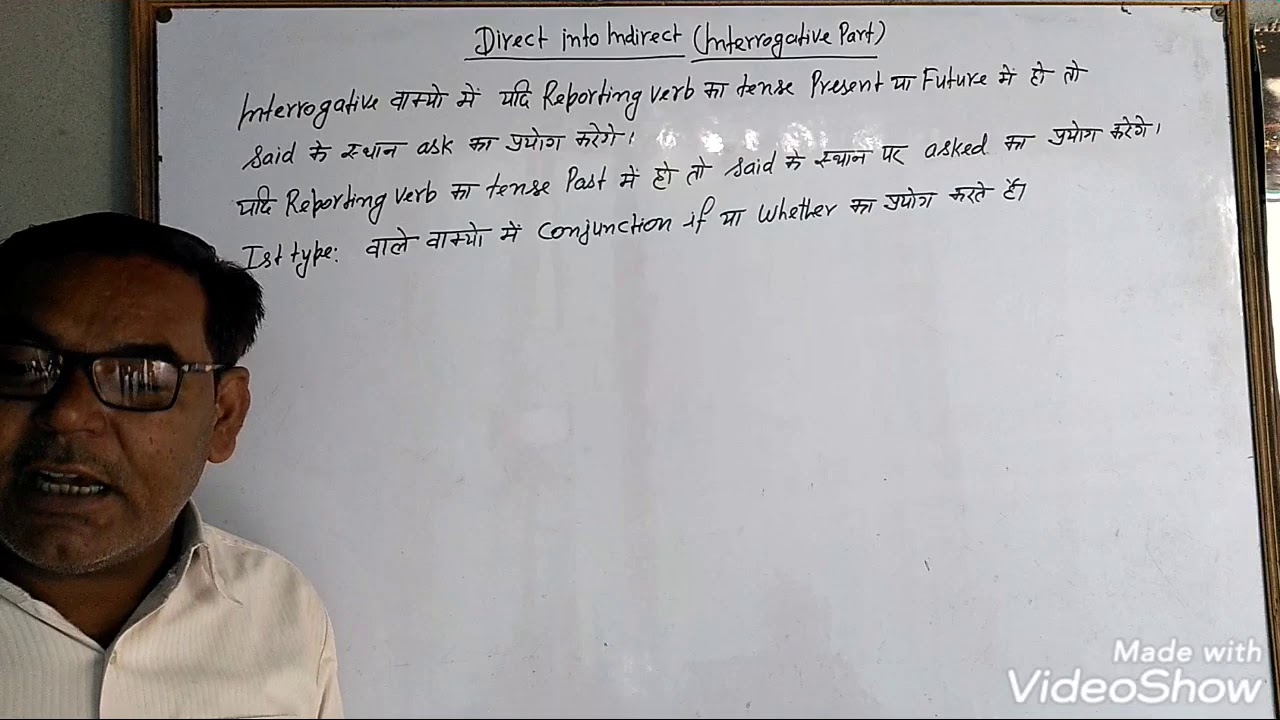 Direct into Indirect (Interrogative Part)
Interrogative वाक्यो में यदि Reporting verb का tense Present या Future में हो तो
said के स्थान ask का प्रयोग करेगे।
यदि Reporting verb का tense Past में हो तो said के स्थान पर asked का प्रयोग करेगे।
Ist type: वाले वाक्यो में conjunction if या whether का प्रयोग करते हैं।
Made with
VideoShow